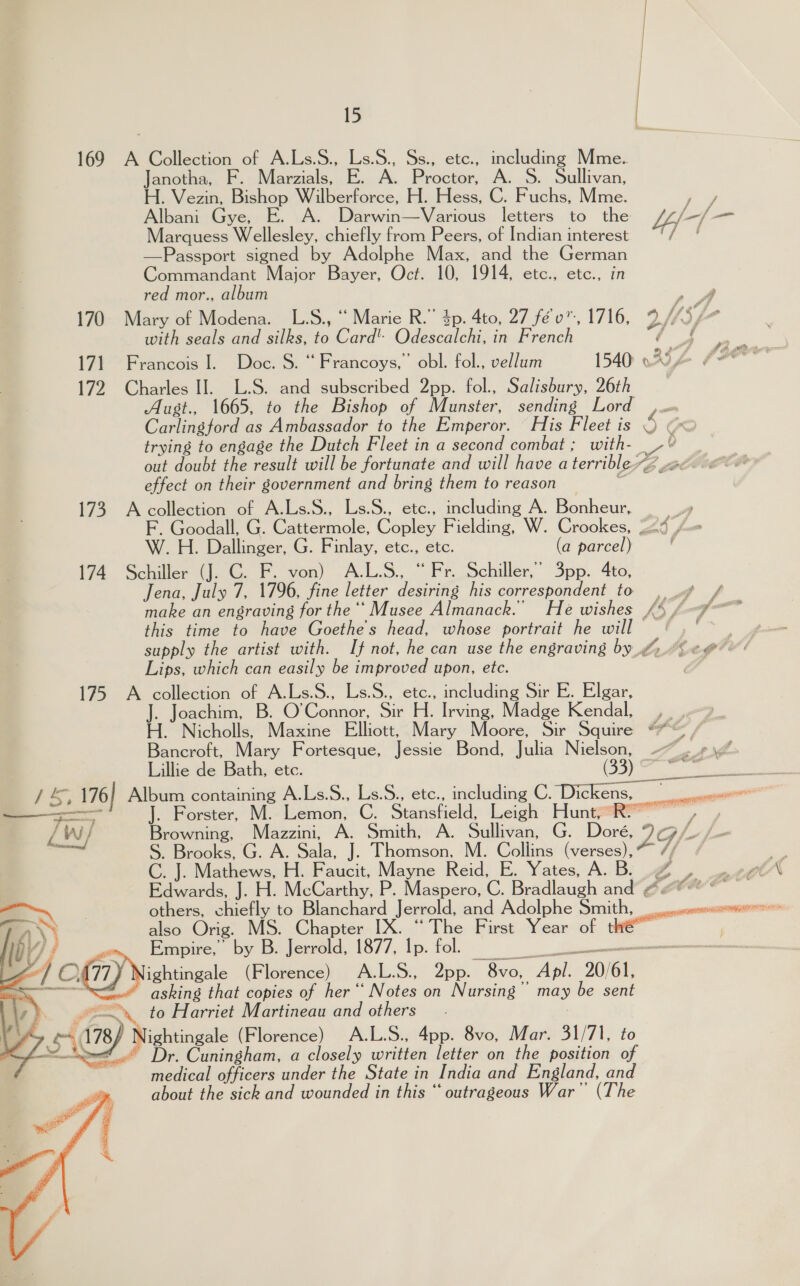 15
169 A Collection of A.Ls.S., Ls.S., Ss., etc., including Mme.
Janotha, F. Marzials, E. A. Proctor, A. S. Sullivan,
H. Vezin, Bishop Wilberforce, H. Hess, C. Fuchs, Mme.
Albani Gye, E. A. Darwin—Various letters to the
Marquess Wellesley, chiefly from Peers, of Indian interest
—Passport signed by Adolphe Max, and the German
Commandant Major Bayer, Oct. 10, 1914, etc., etc., in
red mor., album
170 Mary of Modena. L.S., “Marie R.” 4p. 4to, 27 fév^r., 1716,
with seals and silks, to Card^l. Odescalchi, in French
171 Francois I. Doc. S. “Francoys,” obl. fol., vellum 1540
172 Charles II. L.S. and subscribed 2pp. fol., Salisbury, 26th
Augt., 1665, to the Bishop of Munster, sending Lord
Carlingford as Ambassador to the Emperor. His Fleet is
trying to engage the Dutch Fleet in a second combat; with-
out doubt the result will be fortunate and will have a terrible
effect on their government and bring them to reason
173 A collection of A.Ls.S., Ls.S., etc., including A. Bonheur,
F. Goodall, G. Cattermole, Copley Fielding, W. Crookes,
W. H. Dallinger, G. Finlay, etc., etc. (a parcel)
174 Schiller (J. C. F. von) A.L.S., “Fr. Schiller,” 3pp. 4to,
Jena, July 7, 1796, fine letter desiring his correspondent to
make an engraving for the “Musee Almanack.” He wishes
this time to have Goethe's head, whose portrait he will
supply the artist with. If not, he can use the engraving by
Lips, which can easily be improved upon, etc.
175 A collection of A.Ls.S., Ls.S., etc., including Sir E. Elgar,
J. Joachim, B. O'Connor, Sir H. Irving, Madge Kendal,
H. Nicholls, Maxine Elliott, Mary Moore, Sir Squire
Bancroft, Mary Fortesque, Jessie Bond, Julia Nielson,
Lillie de Bath, etc. (33)
176 Album containing A.Ls.S., Ls.S., etc., including C. Dickens,
J. Forster, M. Lemon, C. Stansfield, Leigh Hunt, R.
Browning. Mazzini, A. Smith, A. Sullivan, G. Doré,
S. Brooks, G. A. Sala, J. Thomson, M. Collins (verses),
C. J. Mathews, H. Faucit, Mayne Reid, E. Yates, A. B.
Edwards, J. H. McCarthy, P. Maspero, C. Bradlaugh and
others, chiefly to Blanchard Jerrold, and Adolphe Smith,
also Orig. MS. Chapter IX. “The First Year of the
Empire,” by B. Jerrold, 1877, 1p. fol.
177 Nightingale (Florence) A.L.S., 2pp. 8vo, Apl. 20/61,
asking that copies of her “Notes on Nursing” may be sent
to Harriet Martineau and others
178 Nightingale (Florence) A.L.S., 4pp. 8vo, Mar. 31/71, to
Dr. Cuningham, a closely written letter on the position of
medical officers under the State in India and England, and
about the sick and wounded in this “outrageous War” (The